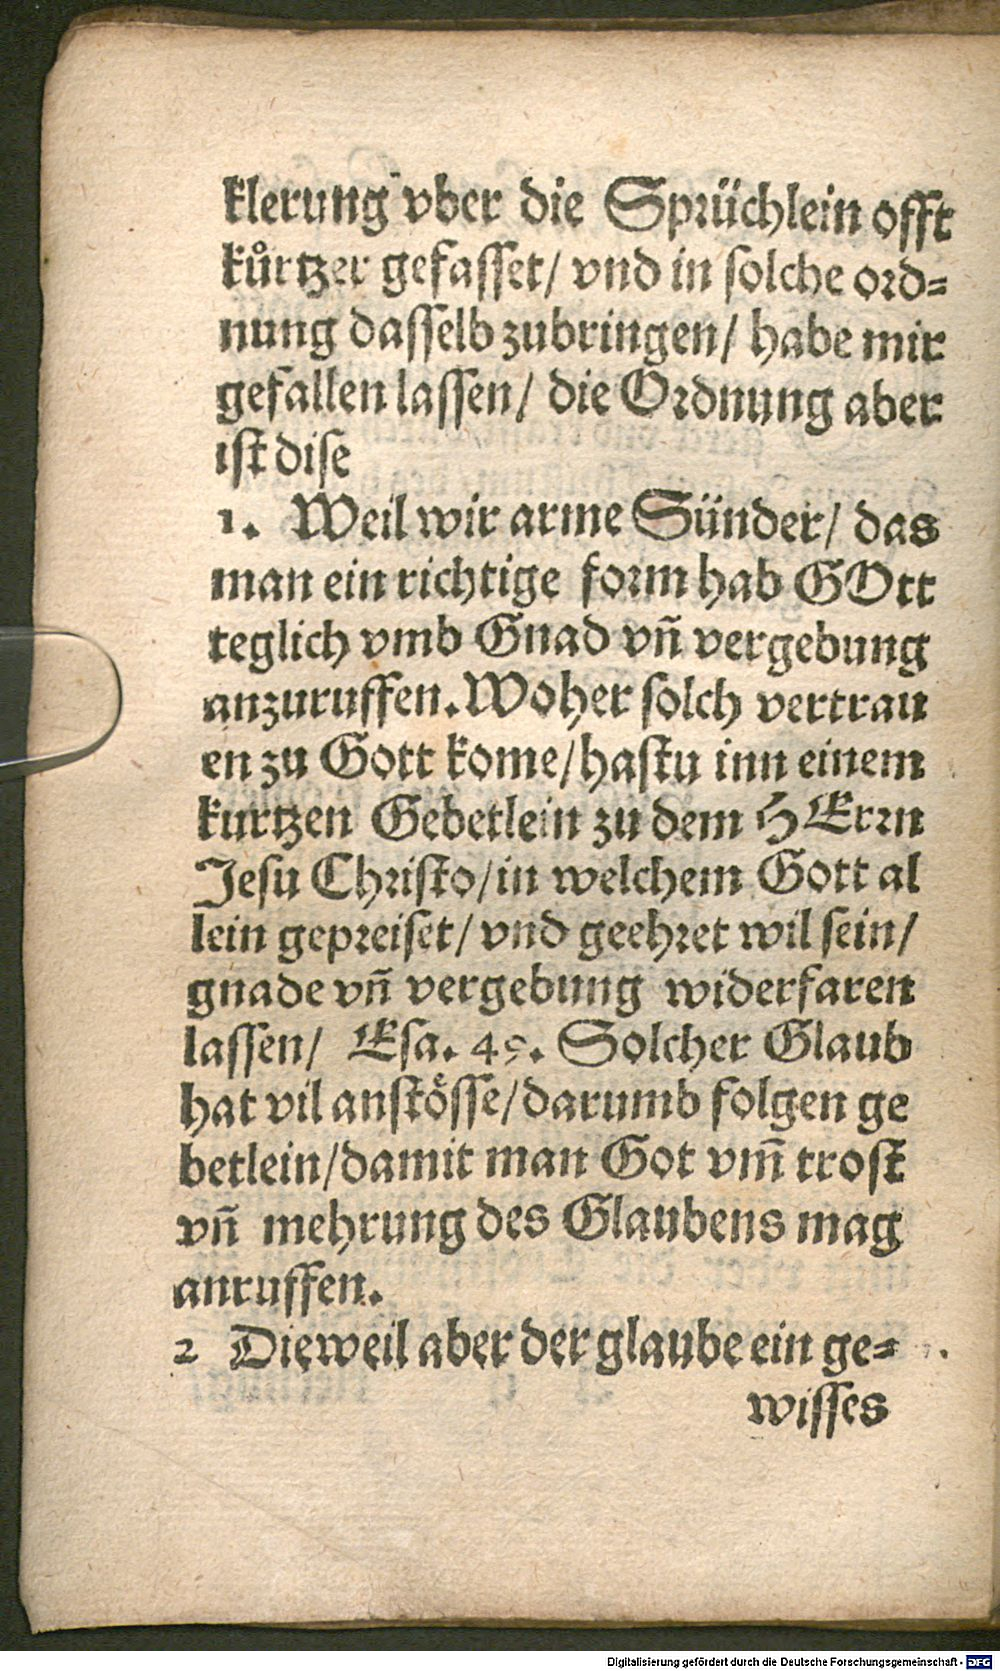 klerung vber die Sprüchlein offt
kůrtzer gefasset/ vnd in solche ord=
nung dasselb zubringen/ habe mir
gefallen lassen/ die Ordnung aber
ist dise
1. Weil wir arme Sünder/ das
man ein richtige form hab GOtt
teglich vmb Gnad vñ vergebung
anzuruffen. Woher solch vertrau
en zu Gott kome/ hastu inn einem
kurtzen Gebetlein zu dem HErrn
Jesu Christo/ in welchem Gott al
lein gepreiset/ vnd geehret wil sein/
gnade vñ vergebung widerfaren
lassen/ Esa. 45. Solcher Glaub
hat vil anstösse/ darumb folgen ge
betlein/ damit man Got vm̃ trost
vñ mehrung des Glaubens mag
anruffen.
2 Dieweil aber der glaube ein ge=
wisses
Digitalisierung gefördert durch die Deutsche Forschungsgemeinschaft - DFG